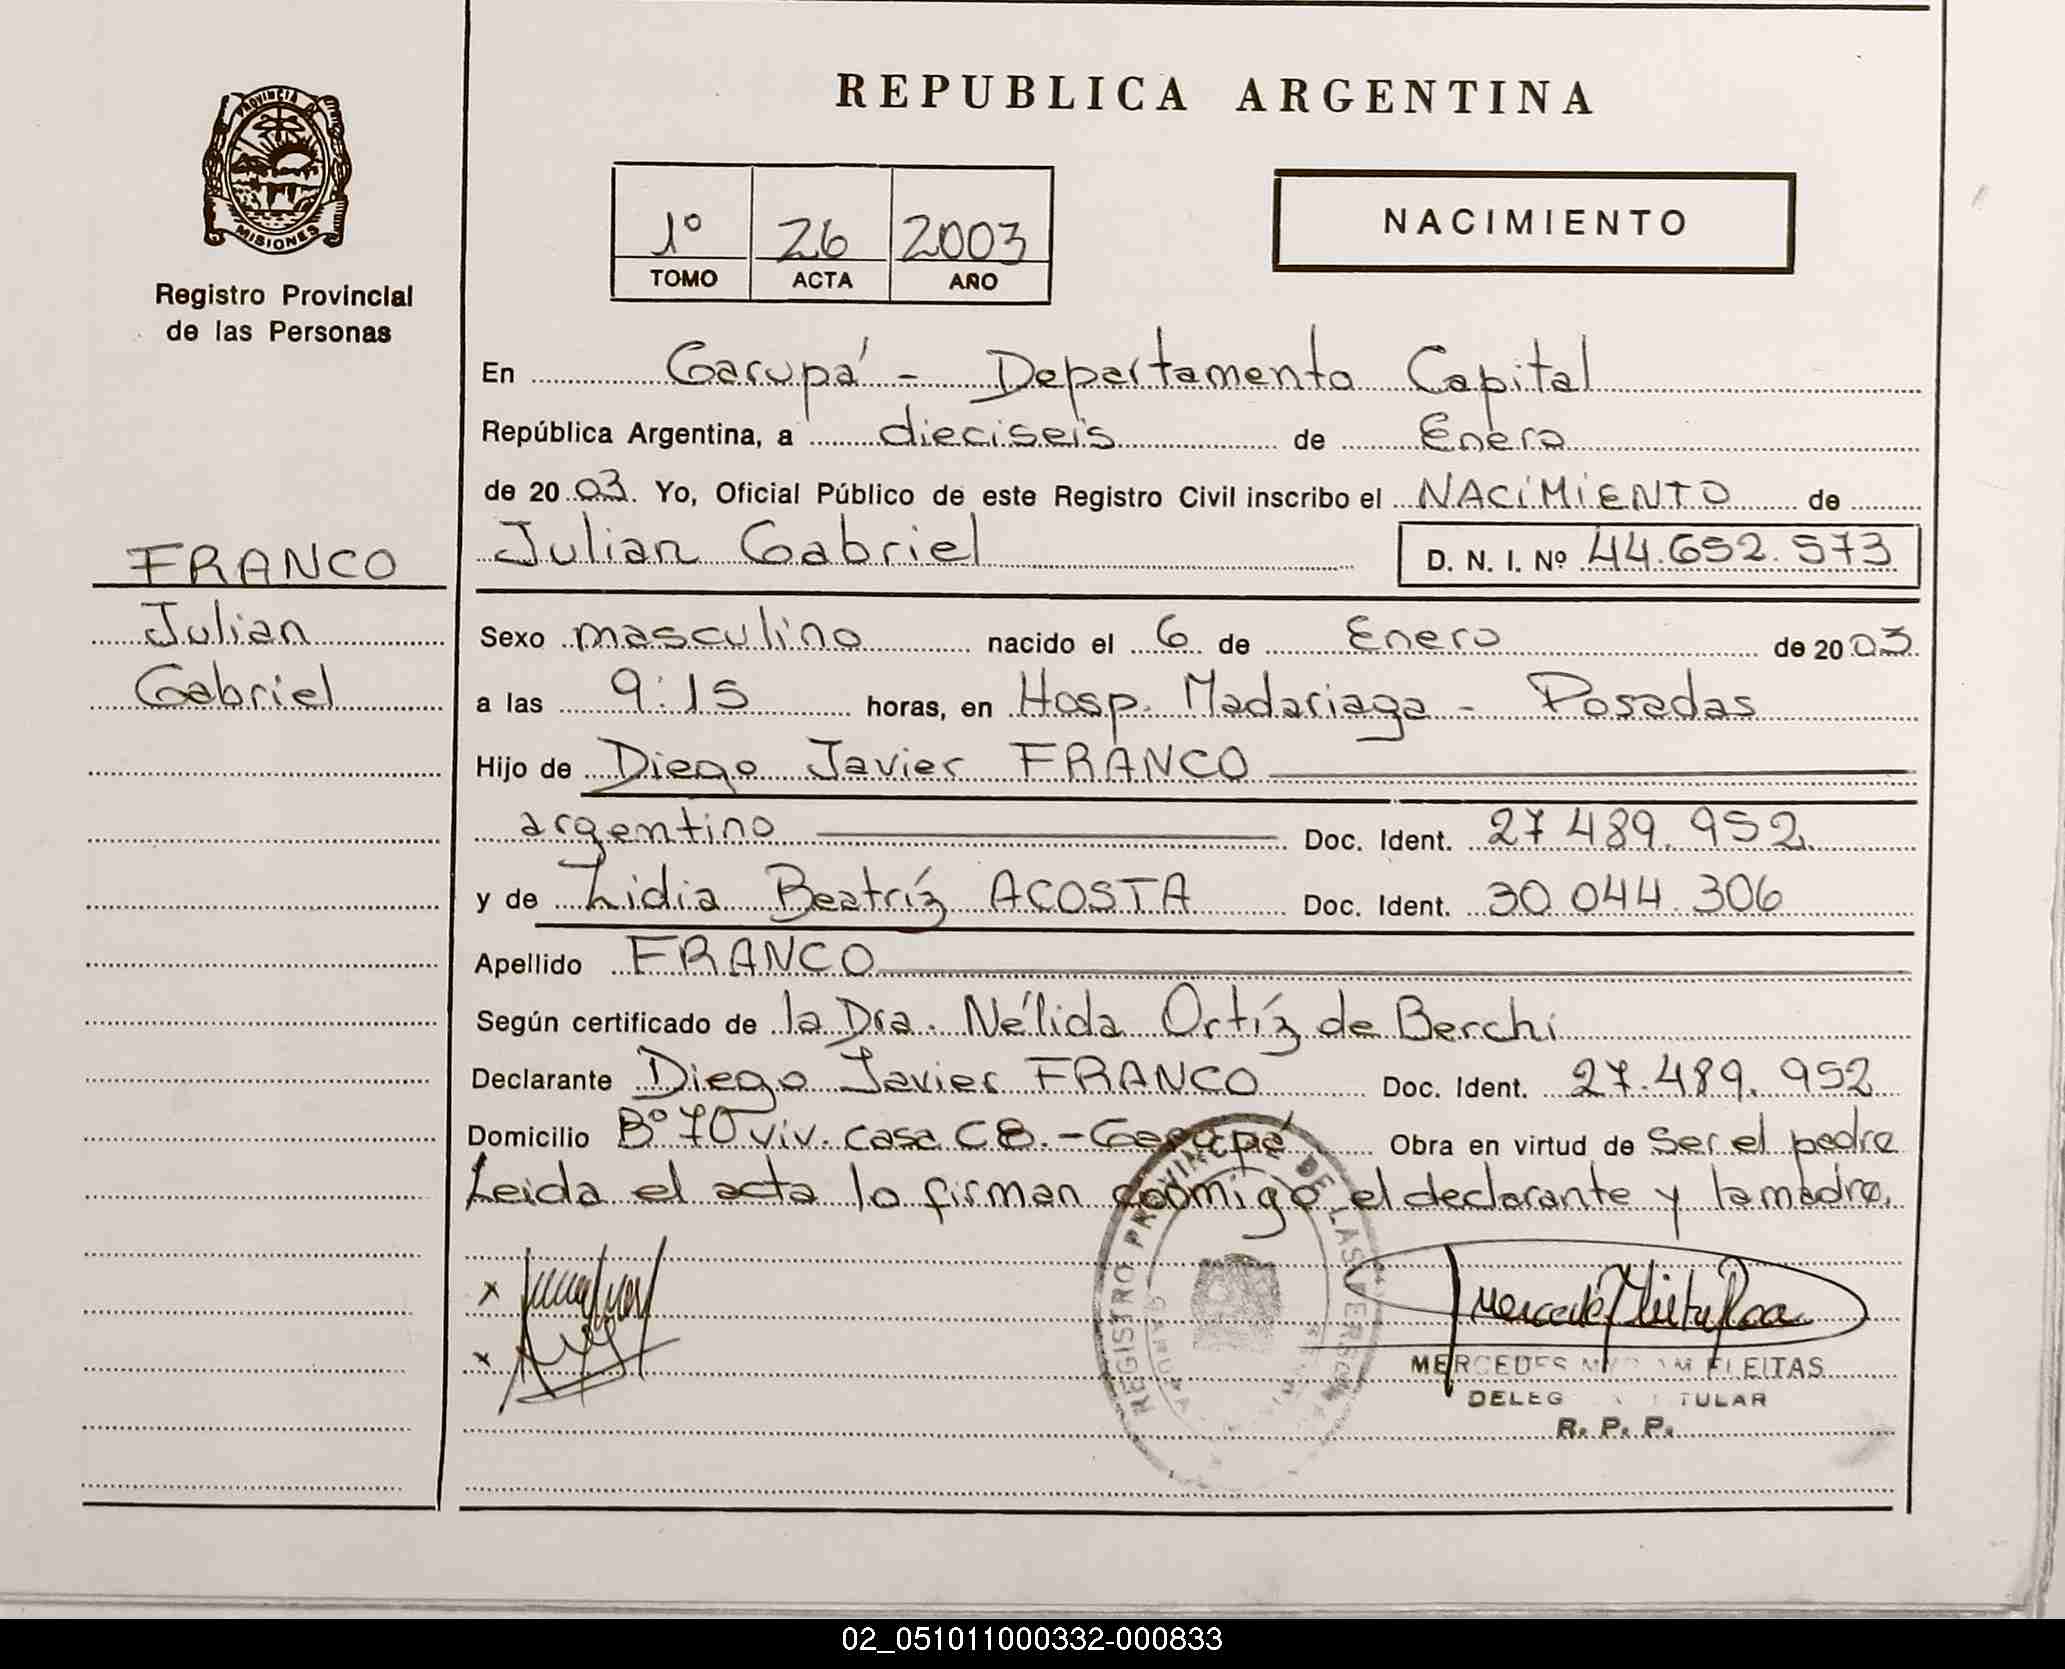 REPUBLICA ARGENTINA
PROVINCIA DE
MISIONES
Registro Provincial
de las Personas
1º 26 2003
TOMO ACTA AÑO
NACIMIENTO
En Garupá - Departamento Capital
República Argentina, a dieciseis de Enero
de 2003. Yo, Oficial Público de este Registro Civil inscribo el NACIMIENTO de
Julian Gabriel D. N. I. Nº 44.652.573
FRANCO
Julian
Gabriel
Sexo masculino nacido el 6 de Enero de 2003.
a las 9:15 horas, en Hosp. Madariaga - Posadas
Hijo de Diego Javier FRANCO
argentino Doc. Ident. 27 489.952
y de Lidia Beatríz ACOSTA Doc. Ident. 30 044.306
Apellido FRANCO
Según certificado de la Dra. Nélida Ortíz de Berchi
Declarante Diego Javier FRANCO Doc. Ident. 27.489.952
Domicilio Bº 70 viv. casa C8.- Garupá Obra en virtud de ser el padre
Leida el acta lo firman conmigo el declarante y la madre.
x
x
REGISTRO PROVINCIAL DE LAS PERSONAS
GARUPA
MERCEDES MYRIAM FLEITAS
DELEGADA TITULAR
R. P. P.
02_051011000332-000833